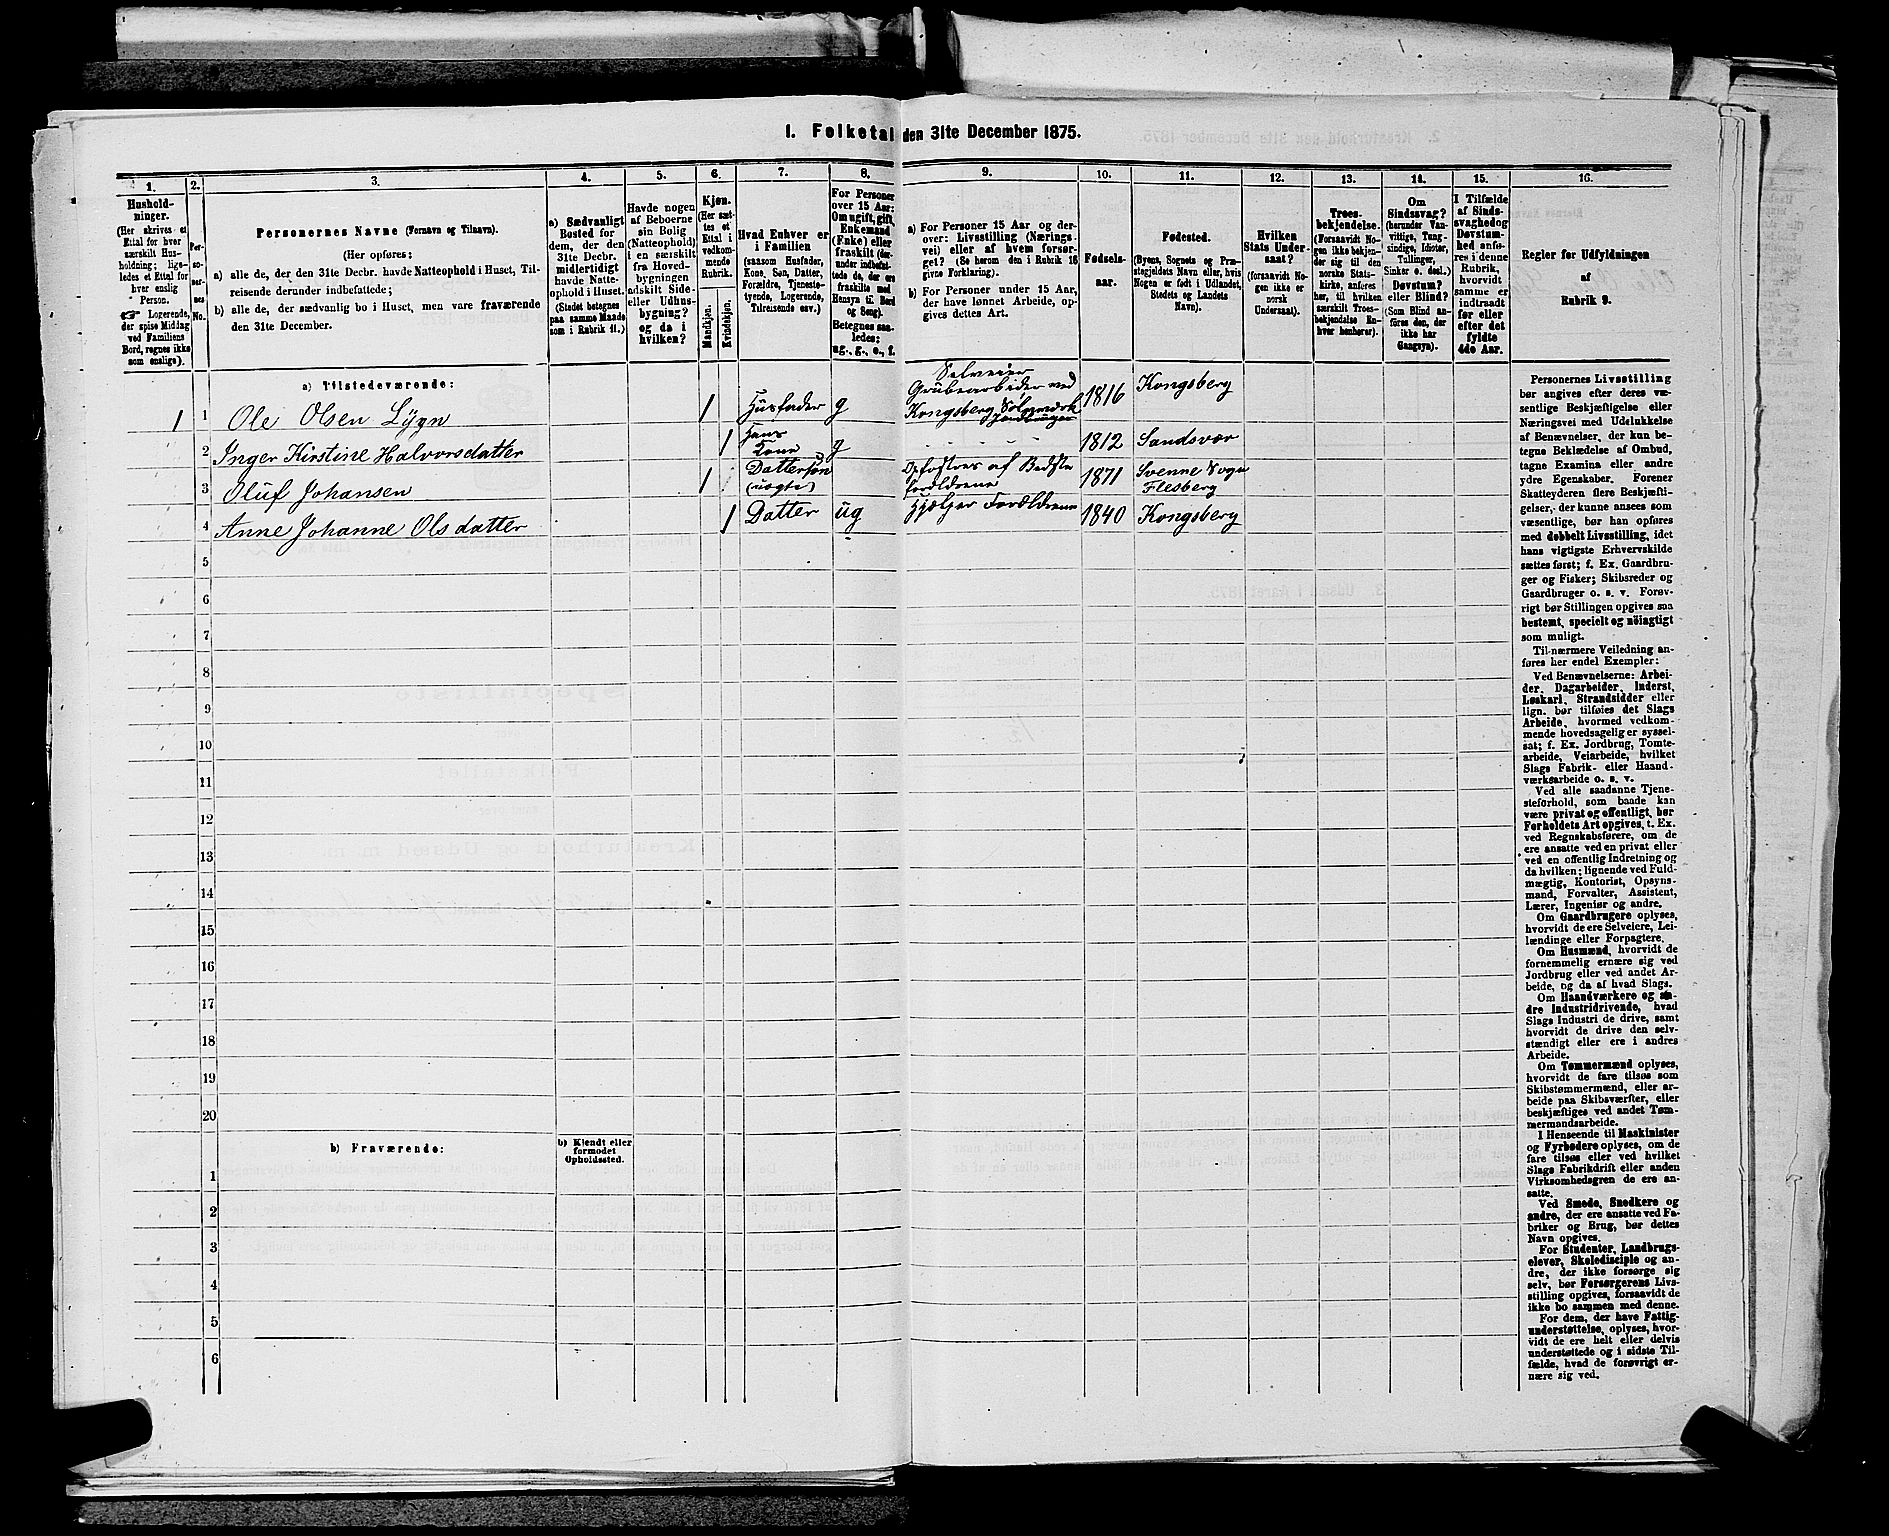 1. Folketal den 31te December 1875.
1.
Hushold-
ninger.
(Her skrives et
Ettal for hver
særskilt Hus-
holdning; lige-
ledes et Ettal for
hver enslig
Person.
☞ Logerende,
der spise Middag
ved Familiens
Bord, regnes ikke
som enslige).
2.
Per-
so-
ner-
nes
No.
3.
Personernes Navne (Fornavn og Tilnavn).
(Her opføres:
a) alle de, der den 31te Decbr. havde Natteophold i Huset, Til-
reisende derunder indbefattede;
b) alle de, der sædvanlig bo i Huset, men vare fraværende
den 31te December.
4.
a) Sædvanligt
Bosted for
dem, der den
31te Decbr.
midlertidigt
havde Natte-
ophold i Huset.
(Stedet betegnes
paa samme Maade
som i Rubrik 11.)
5.
Havde nogen
af Beboerne
sin Bolig
(Natteophold)
i en særskilt
fra Hoved-
bygningen
adskilt Side-
eller Udhus-
bygning?
og da i
hvilken?
6.
Kjøn.
(Her sæt-
tes et
Ettal i
vedkom-
mende
Rubrik.
Mandkjøn.
Kvindekjøn.
7.
Hvad Enhver er
i Familien
(saasom Husfader,
Kone, Søn, Datter,
Forældre, Tjeneste-
tyende, Logerende,
Tilreisende osv.)
8.
For Personer
over 15 Aar:
Om ugift, gift,
Enkemand
(Enke) eller
fraskilt (der-
under indbefat-
tede de, der ere
fraskilte med
Hensyn til Bord
og Seng).
Betegnes saa-
ledes:
ug., g., e., f.
9.
a) For Personer 15 Aar og der-
over: Livsstilling (Nærings-
vei) eller af hvem forsør-
get? (Se herom den i Rubrik 16
givne Forklaring).
b) For Personer under 15 Aar,
der have lønnet Arbeide, op-
gives dettes Art.
10.
Fødsels-
aar.
11.
Fødested.
(Byens, Sognets og Præ-
stegjeldets Navn eller, hvis
Nogen er født i Udlandet,
Stedets og Landets
Navn).
12.
Hvilken
Stats Under-
saat?
(forsaavidt No-
gen ikke er
norsk
Undersaat).
13.
Troes-
bekjendelse.
(Forsaavidt No-
gen ikke bekjen-
der sig til den
norske Stats-
kirke, anføres
her, til hvilken
særskilt Troes-
bekjendelse En-
hver henhører).
14.
Om
Sindssvag?
(herunder Van-
vittige, Tung-
sindige, Idioter,
Tullinger,
Sinker o. desl.)
Døvstum?
eller Blind?
(Som Blind an-
føres den, der
ikke har
Gangsyn).
15.
I Tilfælde
af Sinds-
svaghed og
Døvstum-
hed anfø-
res i denne
Rubrik,
hvorvidt
samme er
indtraadt
før eller
efter det
fyldte
4de Aar.
16.
Regler for Udfyldningen
af
Rubrik 9.
a) Tilstedeværende:
1 1 Ole Olsen Lÿgn 1 Husfader g Selveier Grubearbeider ved Kongsberg Sølvværk Jordbruger 1816 Kongsberg
2 Inger Kirstine Halvorsdatter 1 Hans Kone g 1812 Sandsvær
3 Oluf Johansen 1 Dattersøn (uægte) Opfostres af Bedste forældrene 1871 Svenne Sogn Flesberg
4 Anne Johanne Olsdatter 1 Datter ug Hjælper Forældrene 1840 Kongsberg
5
6
7
8
9
10
11
12
13
14
15
16
17
18
19
20
b) Fraværende:
b) Kjendt eller
formodet
Opholdssted.
1
2
3
4
5
6
Personernes Livsstilling
bør angives efter deres væ-
sentlige Beskjæftigelse eller
Næringsvei med Udelukkelse
af Benævnelser, der kun be-
tegne Beklædelse af Ombud,
tagne Examina eller andre
ydre Egenskaber. Forener
Skatteyderen flere Beskjæfti-
gelser, der kunne ansees som
væsentlige, bør han opføres
med dobbelt Livsstilling, idet
hans vigtigste Erhvervskilde
sættes først; f. Ex. Gaardbru-
ger og Fisker; Skibsreder og
Gaardbruger o. s. v. Forøv-
rigt bør Stillingen opgives saa
bestemt, specielt og nöiagtigt
som muligt.
Til nærmere Veiledning an-
føres her endel Exempler:
Ved Benævnelserne: Arbei-
der, Dagarbeider, Inderst,
Løskarl, Strandsidder eller
lign. bør tilføies det Slags
Arbeide, hvormed vedkom-
mende hovedsagelig er syssel-
sat; f. Ex. Jordbrug, Tomte-
arbeide, Veiarbeide, hvilket
Slags Fabrik- eller Haand-
værksarbeide o. s. v.
Ved alle saadanne Tjene-
steforhold, som baade kan
være privat og offentligt, bør
Forholdets Art opgives, t. Ex.
ved Regnskabsførere, om de
ere ansatte ved en privat eller
ved en offentlig Indretning og
da hvilken; lignende ved Fuld-
mægtig, Kontorist, Opsyns-
mand, Forvalter, Assistent,
Lærer, Ingeniør og andre.
Om Gaardbrugere oplyses,
hvorvidt de ere Selveiere, Lei-
lændinge eller Forpagtere.
Om Husmænd, hvorvidt de
fornemmelig ernære sig ved
Jordbrug eller ved andet Ar-
beide, og da af hvad Slags.
Om Haandværkere og an-
dre Industridrivende, hvad
Slags Industri de drive, samt
hvorvidt de drive den selv-
stændigt eller ere i andres
Arbeide.
Om Tømmermænd oplyses,
hvorvidt de fare tilsøs som
Skibstømmermænd, eller ar-
beide paa Skibsværfter, eller
beskjæftiges ved andet Tøm-
mermandsarbeide.
I Henseende til Maskinister
og Fyrbødere oplyses, om de
fare tilsøs eller ved hvilket
Slags Fabrikdrift eller anden
Virksomhedsgren de ere an-
satte.
Ved Smede, Snedkere og
andre, der ere ansatte ved Fa-
briker og Brug, bør dettes
Navn opgives.
For Studenter, Landbrugs-
elever, Skoledisciple og an-
dre, der ikke forsørge sig
selv, bør Forsørgerens Livs-
stilling opgives, forsaavidt de
ikke bo sammen med denne.
For dem, der have Fattig-
understøttelse, oplyses, hvor-
vidt de ere helt eller delvis
understøttede og i sidste Til-
fælde, hvad de forøvrigt er-
nære sig ved.